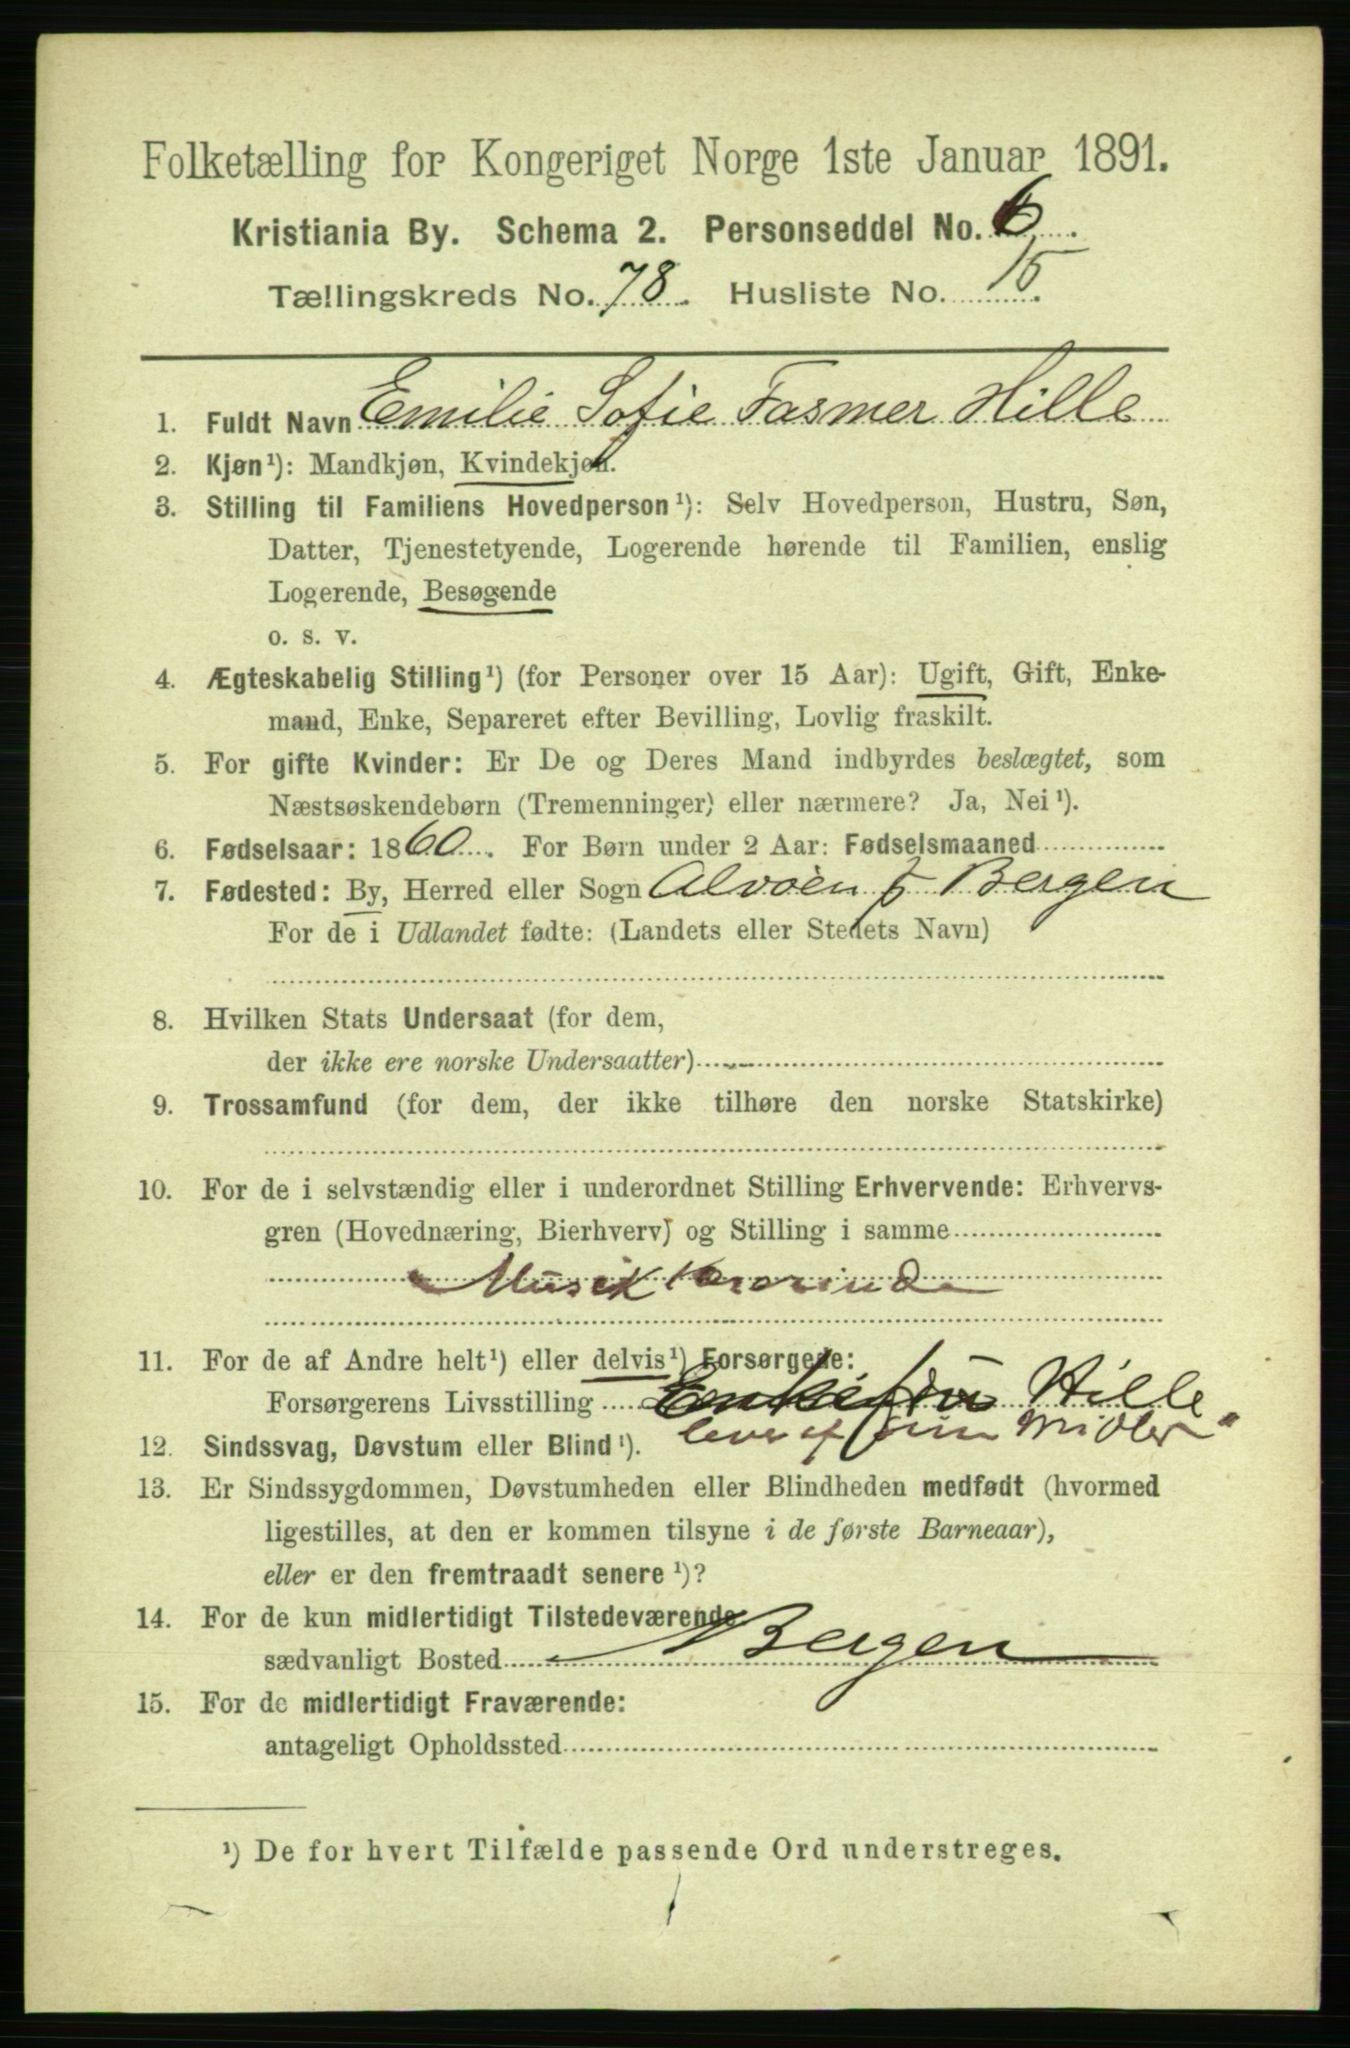 Folketælling for Kongeriget Norge 1ste Januar 1891.
Kristiania By. Schema 2. Personseddel No. 6.
Tællingskreds No. 78. Husliste No. 15.
1. Fuldt Navn Emilie Sofie Fasmer Hille
2. Kjøn¹): Mandkjøn, Kvindekjøn.
3. Stilling til Familiens Hovedperson¹): Selv Hovedperson, Hustru, Søn,
Datter, Tjenestetyende, Logerende hørende til Familien, enslig
Logerende, Besøgende
o. s. v.
4. Ægteskabelig Stilling¹) (for Personer over 15 Aar): Ugift, Gift, Enke-
mand, Enke, Separeret efter Bevilling, Lovlig fraskilt.
5. For gifte Kvinder: Er De og Deres Mand indbyrdes beslægtet, som
Næstsøskendebørn (Tremenninger) eller nærmere? Ja, Nei¹).
6. Fødselsaar: 1860. For Børn under 2 Aar: Fødselsmaaned
7. Fødested: By, Herred eller Sogn Alvøen f Bergen
For de i Udlandet fødte: (Landets eller Stedets Navn)
8. Hvilken Stats Undersaat (for dem,
der ikke ere norske Undersaatter)
9. Trossamfund (for dem, der ikke tilhøre den norske Statskirke)
10. For de i selvstændig eller i underordnet Stilling Erhvervende: Erhvervs-
gren (Hovednæring, Bierhverv) og Stilling i samme
Musik
11. For de af Andre helt¹) eller delvis¹) Forsørgede:
Forsørgerens Livsstilling Enkefru Hille
lever af sine Midler"
12. Sindssvag, Døvstum eller Blind¹).
13. Er Sindssygdommen, Døvstumheden eller Blindheden medfødt (hvormed
ligestilles, at den er kommen tilsyne i de første Barneaar),
eller er den fremtraadt senere¹)?
14. For de kun midlertidigt Tilstedeværende
sædvanligt Bosted Bergen
15. For de midlertidigt Fraværende:
antageligt Opholdssted
¹) De for hvert Tilfælde passende Ord understreges.